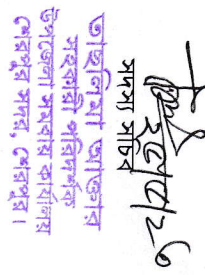 সদস্য সচিব
তাছলিমা আক্তার
সহকারী পরিদর্শক
উপজেলা সমবায় কার্যালয়
শেরপুর সদর, শেরপুর।